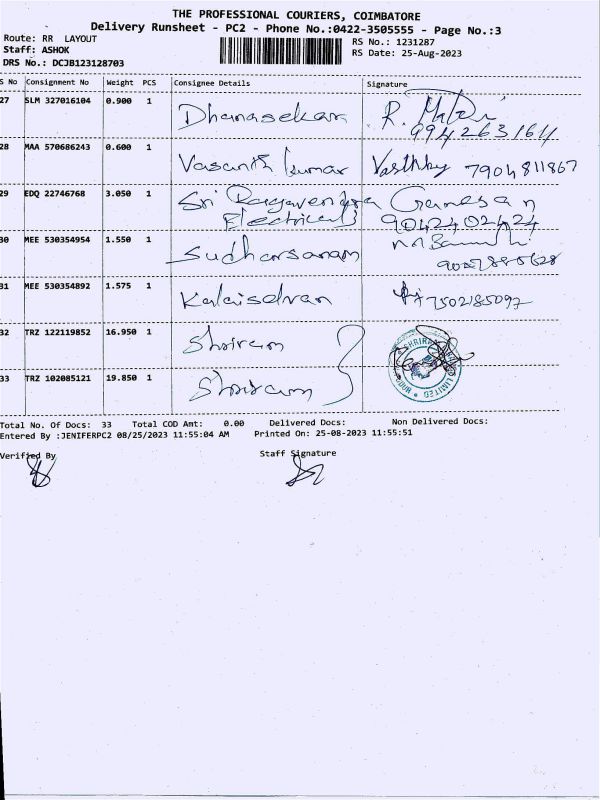 THE PROFESSIONAL COURIERS, COIMBATORE
Delivery Runsheet - PC2 - Phone No.:0422-3505555 - Page No.:3
Route: RR LAYOUT
RS No.: 1231287
Staff: ASHOK
RS Date: 25-Aug-2023
DRS No.: DCJB123128703
S No Consignment No Weight PCS Consignee Details Signature
27 SLM 327016104 0.900 1 Dhanasekar R.
9942631611
28 MAA 570686243 0.600 1 Vasanth kumar 7904811867
29 EDQ 22746768 3.050 1 Sri Ragavendra Ganesan
Electricals 9042402424
30 MEE 530354954 1.550 1 Sudharsanam
31 MEE 530354892 1.575 1 Kalaiselvan 7502185097
32 TRZ 122119852 16.950 1 Shriram
33 TRZ 102085121 19.850 1 Shriram
Total No. Of Docs: 33 Total COD Amt: 0.00 Delivered Docs: Non Delivered Docs:
Entered By :JENIFERPC2 08/25/2023 11:55:04 AM Printed On: 25-08-2023 11:55:51
Verified By Staff Signature